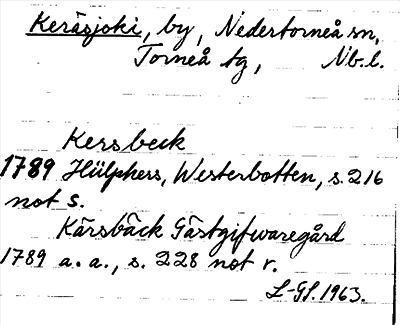 Keräsjoki, by, Nedertorneå sn,
Torneå tg, Nb.l.
Kersbeck
1789 Hülphers, Westerbotten, s. 216
not s.
Kärsbäck Gästgifwaregård
1789 a. a., s. 228 not r.
L-Gl. 1963.